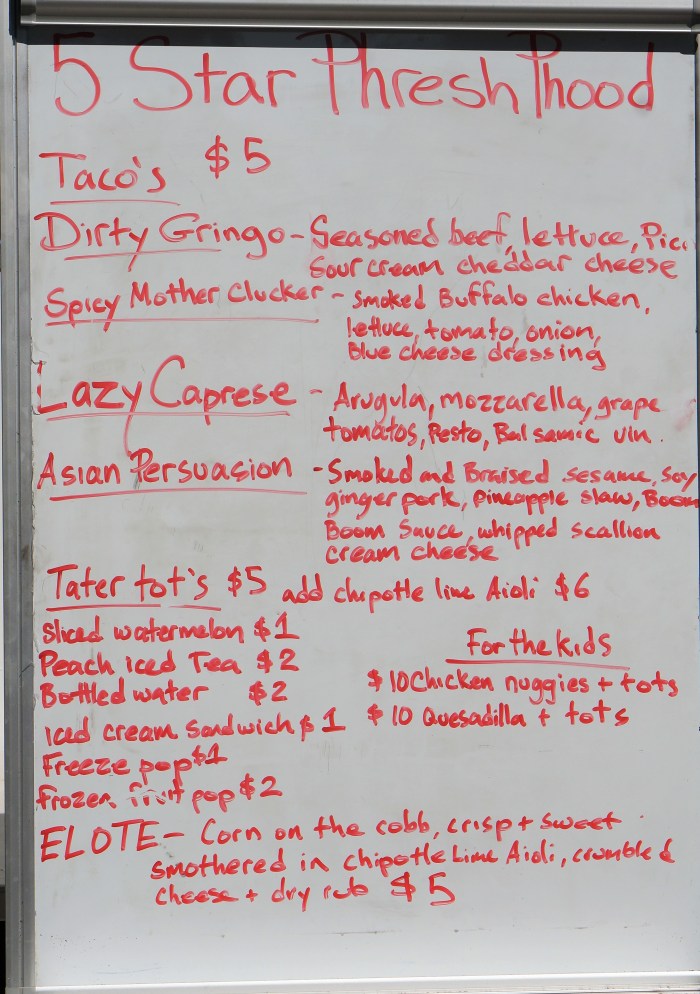 5 Star Phresh Phood
Taco's $5
Dirty Gringo - Seasoned beef, lettuce, Pico
Sour cream cheddar cheese
Spicy Mother Clucker - Smoked Buffalo chicken,
lettuce, tomato, onion,
Blue cheese dressing
Lazy Caprese - Arugula, mozzarella, grape
tomatos, Pesto, Balsamic vin.
Asian Persuasion - Smoked and Braised sesame, soy
ginger pork, pineapple slaw, Boom
Boom Sauce, whipped scallion
cream cheese
Tater tot's $5 add chipotle lime Aioli $6
Sliced watermelon $1
Peach iced Tea $2
Bottled water $2
iced cream Sandwich $1
Freeze pop $1
frozen fruit pop $2
For the kids
$10 Chicken nuggies + tots
$10 Quesadilla + tots
ELOTE - Corn on the cobb, crisp + sweet
smothered in chipotle Lime Aioli, crumbled
cheese + dry rub $5